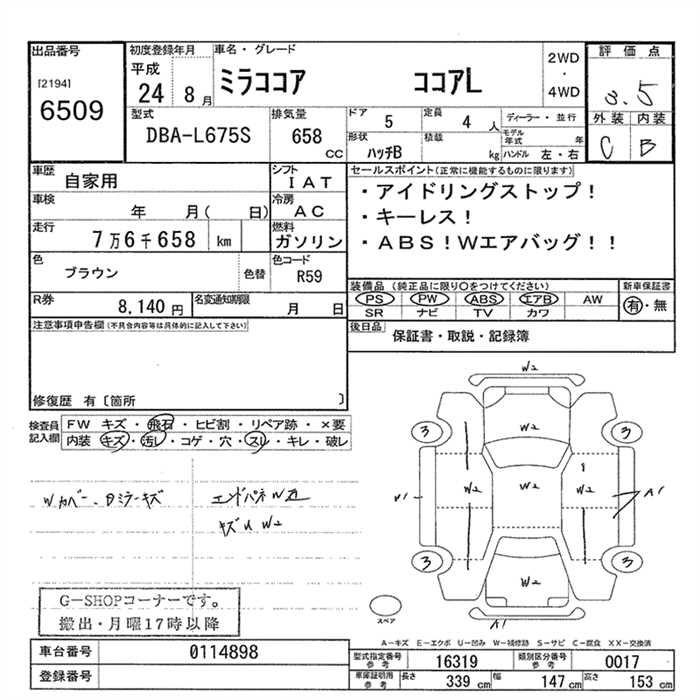 出品番号
[2194]
6509
初度登録年月
平成
24 8月
車名・グレード
ミラココア ココアL
2WD
・
4WD
評価点
3.5
外装 内装
C B
型式
DBA-L675S
排気量
658
CC
ドア
5
定員
4 人
形状
ハッチB
積載
kg
ディーラー・並行
モデル年式 年
ハンドル 左・右
車歴
自家用
シフト
IAT
車検
年 月( 日)
冷房
AC
走行
7万6千658 km
燃料
ガソリン
色
ブラウン
色替
色コード
R59
R券
8,140円
名変通知期限
月 日
セールスポイント(正常に機能するものに限ります)
・アイドリングストップ!
・キーレス!
・ABS!Wエアバッグ!!
装備品(純正品に限り〇をつけてください)
PS PW ABS エアB AW
SR ナビ TV カワ
新車保証書
有・無
後日品
保証書・取説・記録簿
注意事項申告欄(不具合内容等は具体的に記入して下さい)
修復歴 有〔箇所 〕
検査員
記入欄
FW キズ・飛石・ヒビ割・リペア跡・×要
内装 キズ・汚レ・コゲ・穴・スレ・キレ・破レ
Wカバー、Dミラーキズ
エンドパネW
キズU W2
W2
3 3
W2
W2 W2 W2
W1
A1
3 3
W2
A1
スペア
G-SHOPコーナーです。
搬出・月曜17時以降
A-キズ E-エクボ U-凹み W-補修跡 S-サビ C-腐食 XX-交換済
車台番号
0114898
登録番号
型式指定番号
参考
16319
類別区分番号
参考
0017
車庫証明用
参考
長さ 339cm 幅 147cm 高さ 153cm